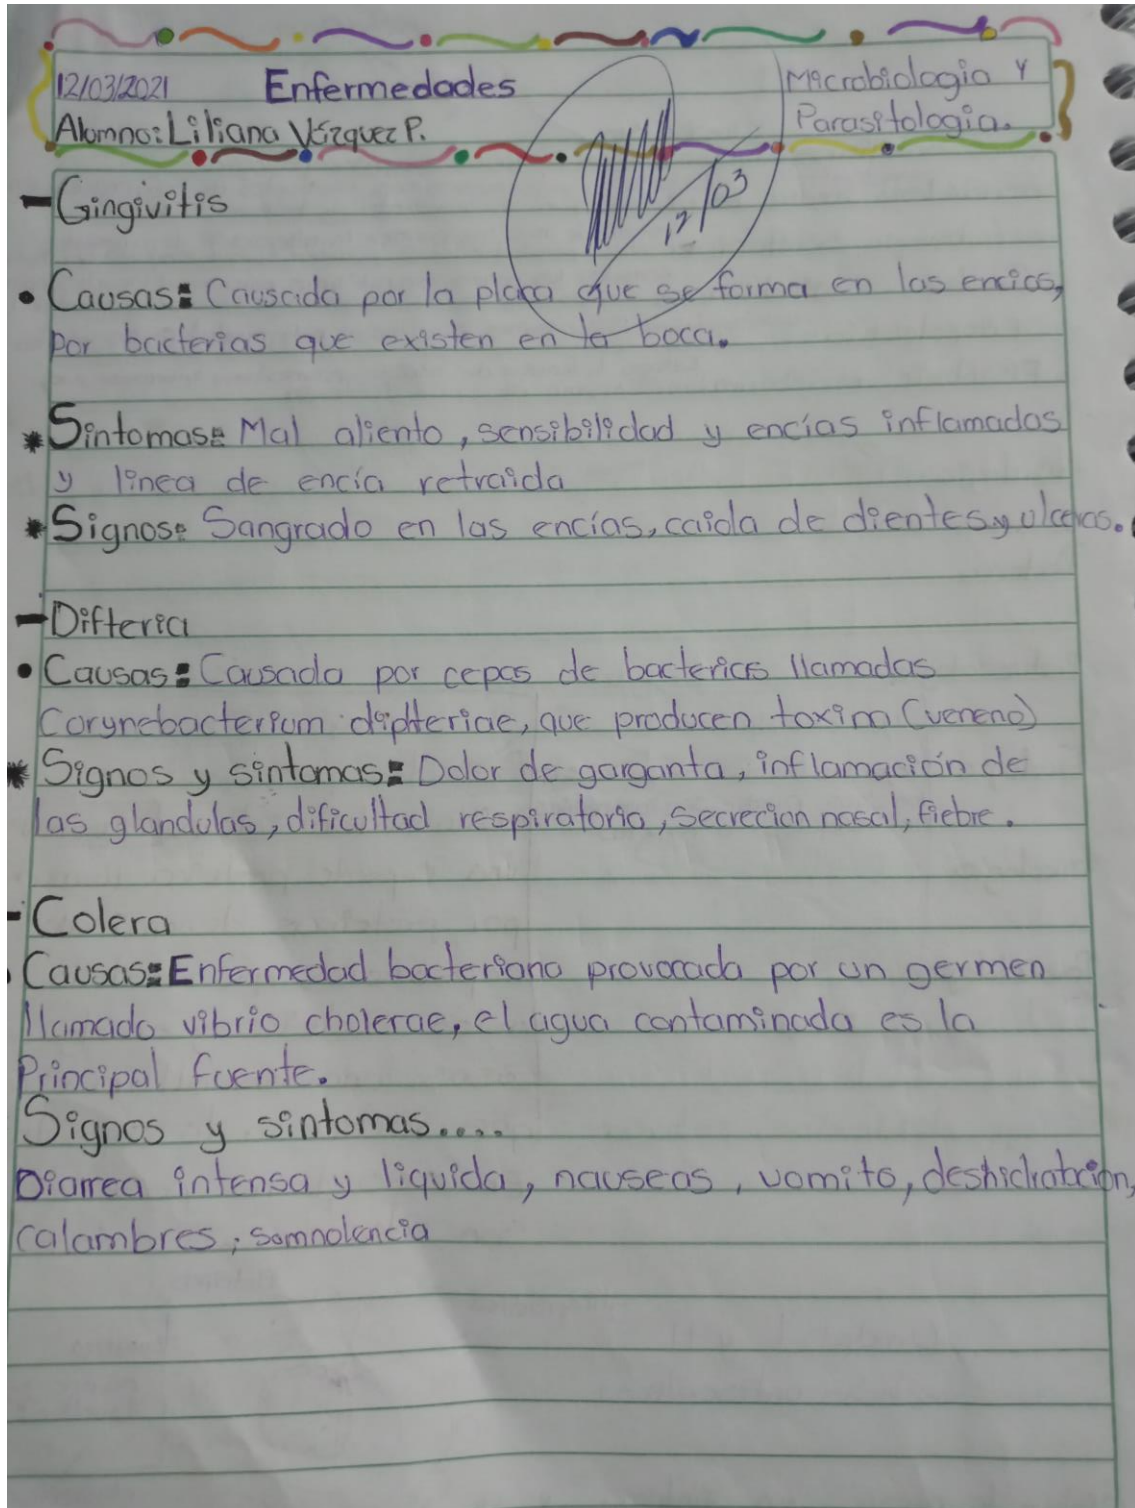 12/03/2021 Enfermedades Microbiologia Y
Alumna: Liliana Vázquez P. Parasitologia.
12/03
- Gingivitis
• Causas: Causada por la placa que se forma en las encias,
por bacterias que existen en la boca.
* Sintomas: Mal aliento, sensibilidad y encías inflamadas
y linea de encía retraida
* Signos: Sangrado en las encías, caida de dientes y ulceras.
- Difteria
• Causas: Causada por cepas de bacterias llamadas
Corynebacterium diphteriae, que producen toxina (veneno)
* Signos y sintomas: Dolor de garganta, inflamación de
las glandulas, dificultad respiratoria, secrecion nasal, fiebre.
- Colera
• Causas: Enfermedad bacteriana provocada por un germen
llamado vibrio cholerae, el agua contaminada es la
Principal fuente.
Signos y sintomas....
Diarrea intensa y liquida, nauseas, vomito, deshidratación,
calambres, somnolencia